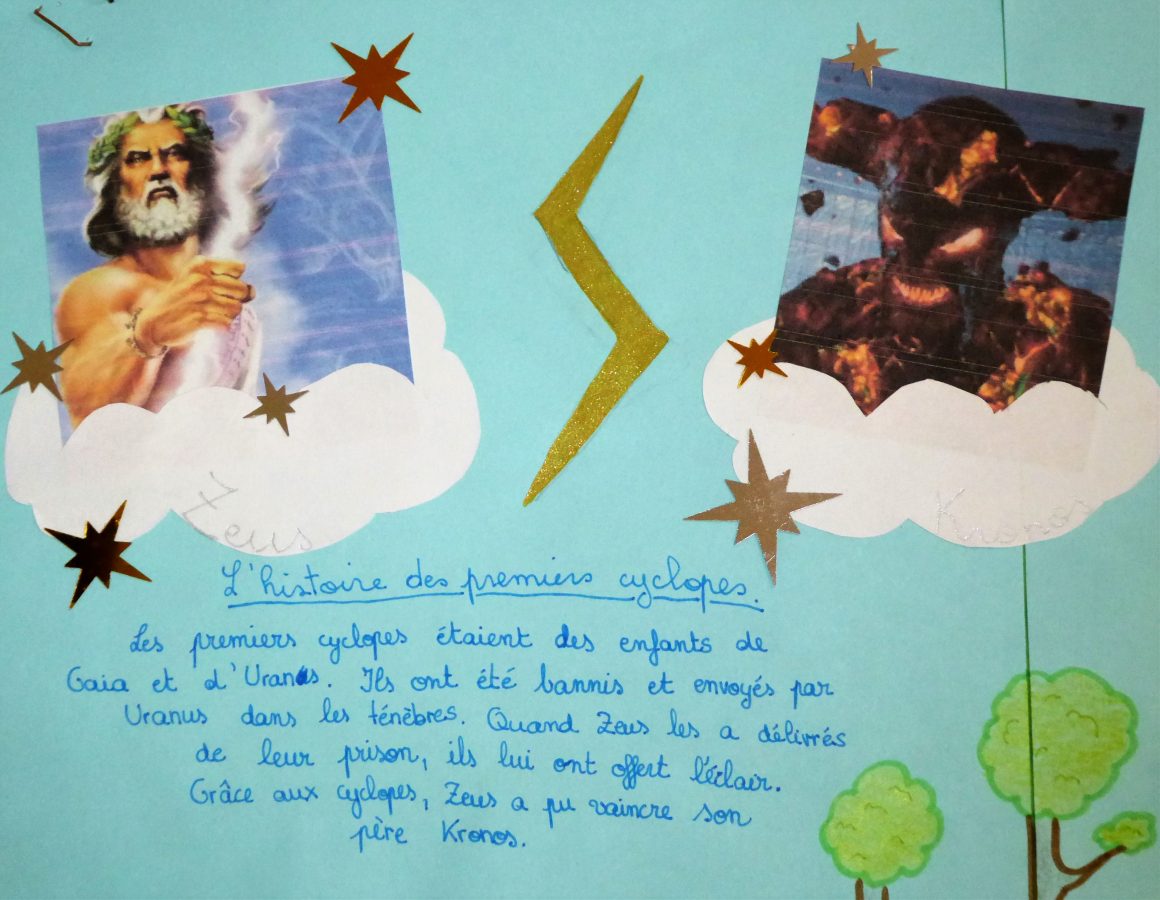 Zeus
Kronos
L'histoire des premiers cyclopes.
Les premiers cyclopes étaient des enfants de
Gaia et d'Uranus. Ils ont été bannis et envoyés par
Uranus dans les ténèbres. Quand Zeus les a délivrés
de leur prison, ils lui ont offert l'éclair.
Grâce aux cyclopes, Zeus a pu vaincre son
père Kronos.